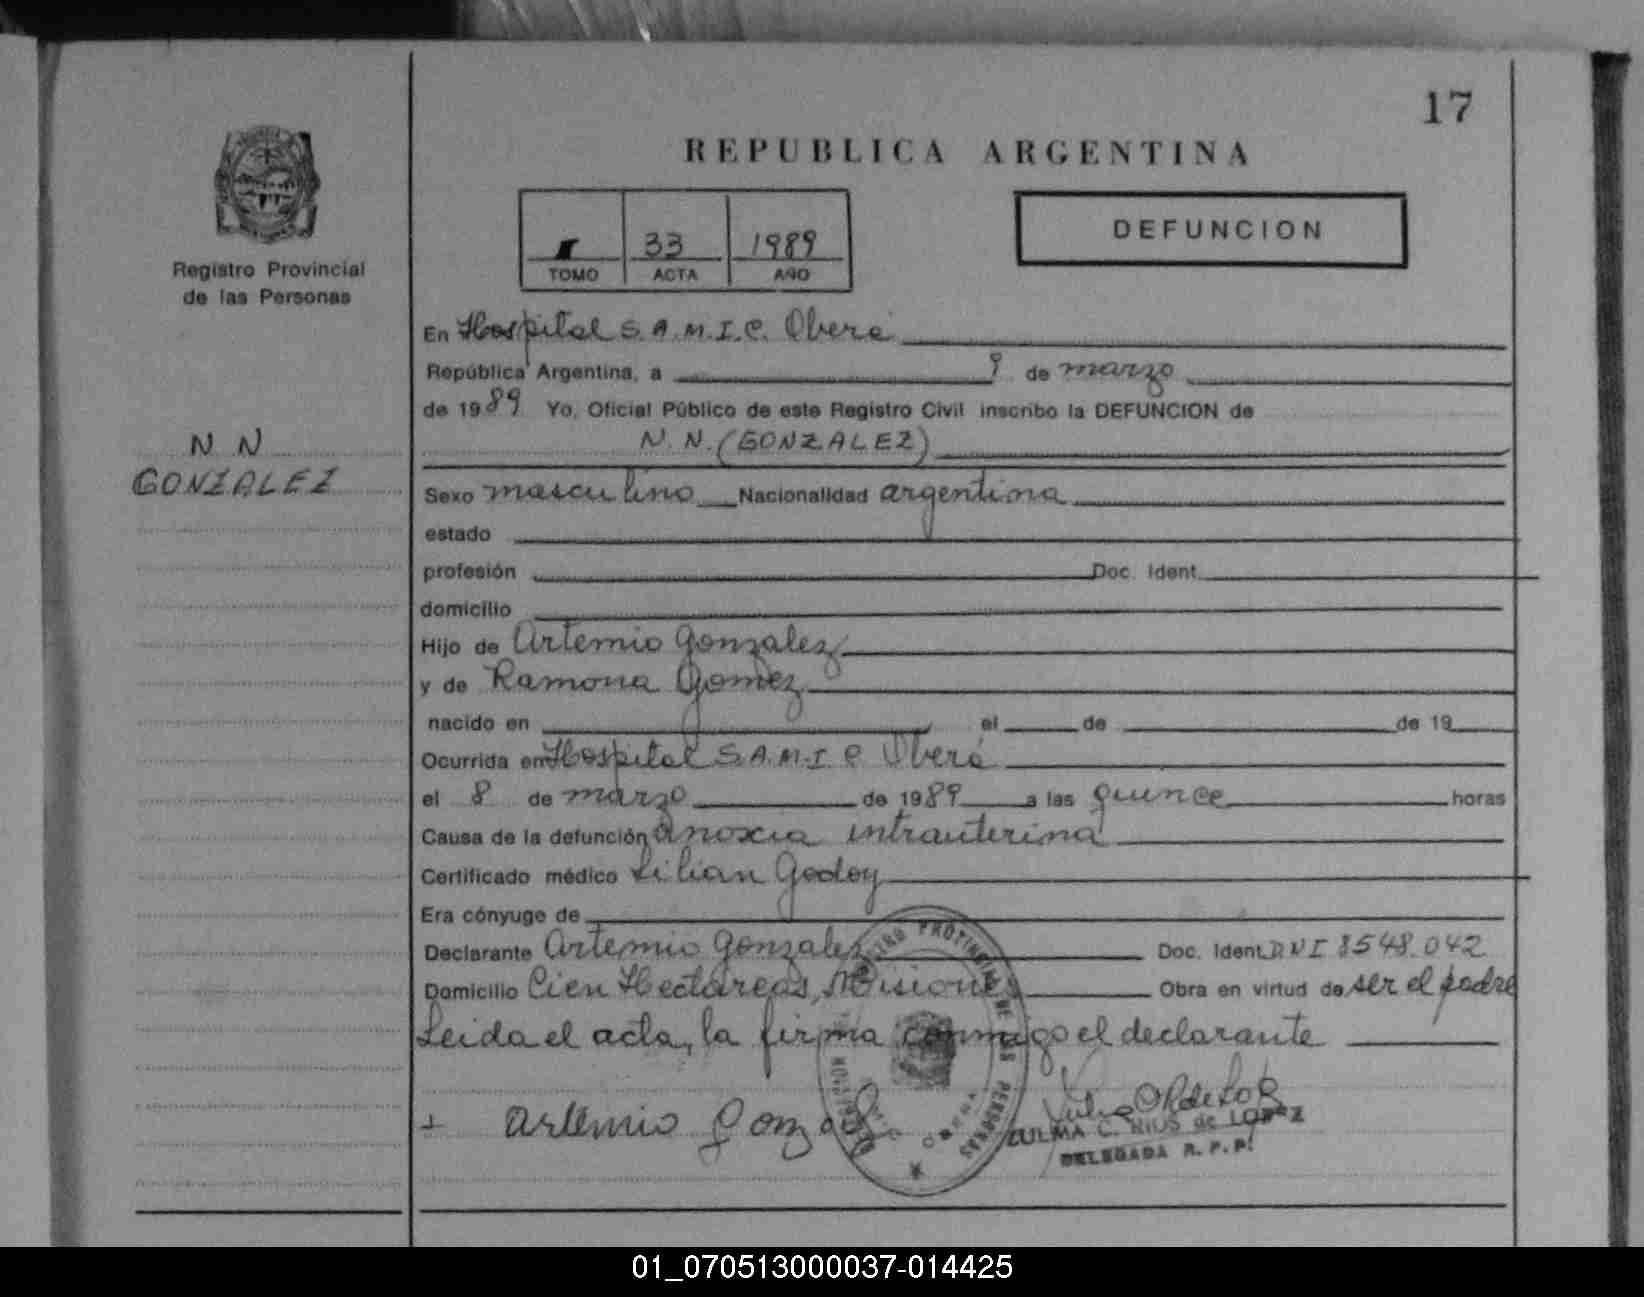 17
REPUBLICA ARGENTINA
Registro Provincial
de las Personas
33 1989
TOMO ACTA AÑO
DEFUNCION
En Hospital S.A.M.I.C. Oberá
República Argentina, a 9 de marzo
de 1989 Yo, Oficial Público de este Registro Civil inscribo la DEFUNCION de
N N
GONZALEZ
N. N. (GONZALEZ)
Sexo masculino Nacionalidad argentina
estado
profesión Doc. Ident.
domicilio
Hijo de Artemio Gonzalez
y de Ramona Gomez
nacido en el de de 19
Ocurrida en Hospital S.A.M.I.C Oberá
el 8 de marzo de 1989 a las quince horas
Causa de la defunción anoxia intrauterina
Certificado médico Lilian Godoy
Era cónyuge de
Declarante Artemio Gonzalez Doc. Ident. DNI 8548.042
Domicilio Cien Hectáreas, Misiones Obra en virtud de ser el padre
Leida el acta, la firma conmigo el declarante
Artemio Gonzalez
ZULMA C. RIUS de LOPEZ
DELEGADA R. P. P.
01_070513000037-014425